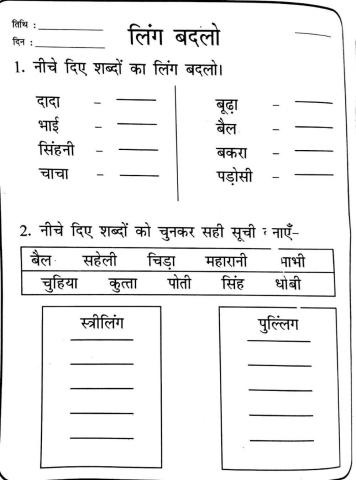 तिथि : ____________
दिन : ____________
लिंग बदलो
1. नीचे दिए शब्दों का लिंग बदलो।
दादा – ______ बूढ़ा – ______
भाई – ______ बैल – ______
सिंहनी – ______ बकरा – ______
चाचा – ______ पड़ोसी – ______
2. नीचे दिए शब्दों को चुनकर सही सूची नाएँ–
बैल सहेली चिड़ा महारानी भाभी
चुहिया कुत्ता पोती सिंह धोबी
स्त्रीलिंग पुल्लिंग